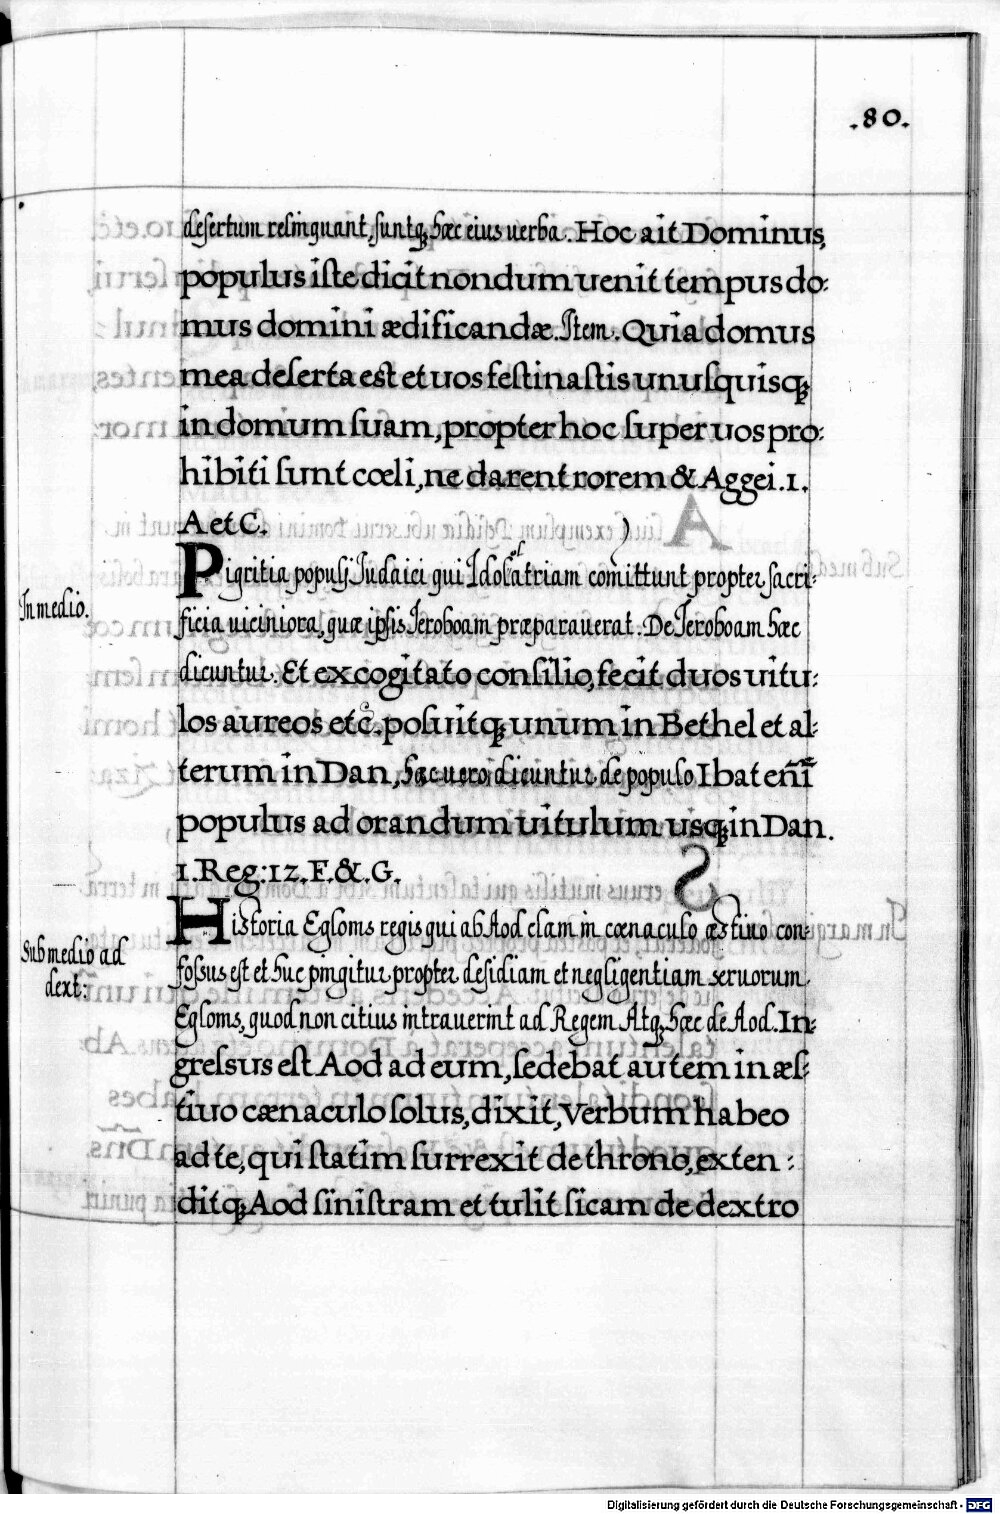 .80.
desertum relinquant, suntq̃ hæc eius uerba. Hoc ait Dominus,
populus iste dicit nondum uenit tempus do:
mus domini ædificandæ. Item. Quia domus
mea deserta est et uos festinastis unusquisq̃
in domum suam, propter hoc super uos pro:
hibiti sunt cœli, ne darent rorem & Aggei .1.
A et C.
In medio.
Pigritia populi Iudaici qui Idolatriam comittunt propter sacri:
ficia uiciniora, quæ ipsis Ieroboam præparauerat. De Ieroboam hæc
dicuntur. Et excogitato consilio, fecit duos uitu:
los aureos etc̃. posuitq̃ unum in Bethel et al:
terum in Dan, hæc uero dicuntur de populo Ibat eñi
populus ad orandum uitulum usq̃ in Dan.
1. Reg: 12. F. & G.
Sub medio ad
dext:
Historia Egloms regis qui ab Aod clam in cœnaculo æstiuo con:
fossus est et huc pingitur propter desidiam et negligentiam seruorum
Egloms, quod non citius intrauerint ad Regem Atq̃ hæc de Aod. In:
gressus est Aod ad eum, sedebat autem in æs:
tiuo cænaculo solus, dixit, Verbum habeo
ad te, qui statim surrexit de throno, exten:
ditq̃ Aod sinistram et tulit sicam de dextro
Digitalisierung gefördert durch die Deutsche Forschungsgemeinschaft - DFG